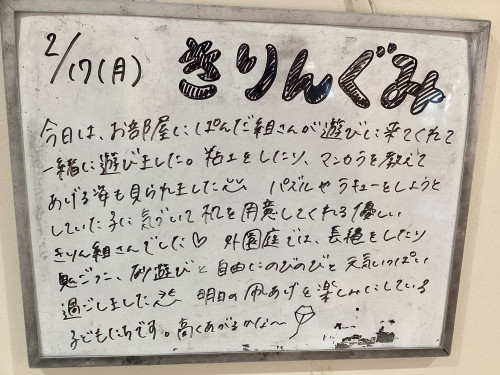 2/17(月) きりんぐみ
今日は、お部屋にぱんだ組さんが遊びに来てくれて
一緒に遊びました。粘土をしたり、マンカラを教えて
あげる姿も見られました パズルやラキューをしようと
していた子に気づいて机を用意してくれる優しい
きりん組さんでした♡ 外園庭では、長縄をしたり
鬼ごっこ、砂遊びと自由にのびのびと元気いっぱい
過ごしました 明日の凧あげを楽しみにしている
子どもたちです。高くあがるかな〜